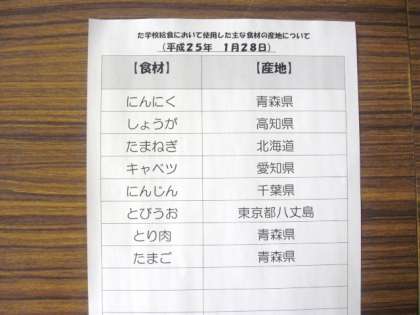 た学校給食において使用した主な食材の産地について
（平成25年　1月28日）
【食材】　【産地】
にんにく　青森県
しょうが　高知県
たまねぎ　北海道
キャベツ　愛知県
にんじん　千葉県
とびうお　東京都八丈島
とり肉　青森県
たまご　青森県